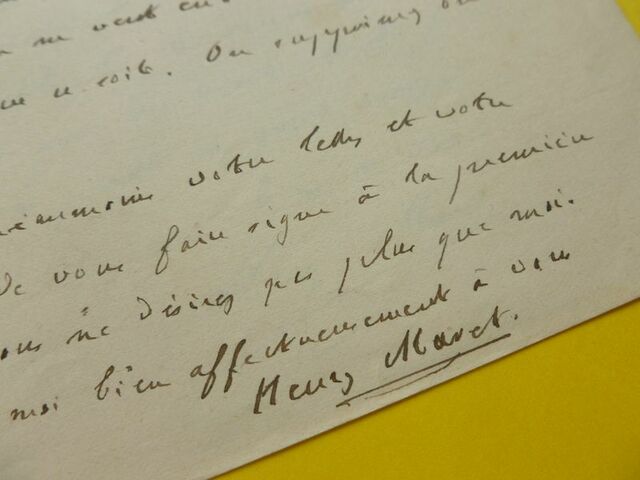 ne veut en
que ce soit. On supprimes on
néanmoins votre lettre et votre
de vous faire signe à la première
vous ne désirez pas plus que moi.
moi bien affectueusement à vous
Henry Maret.